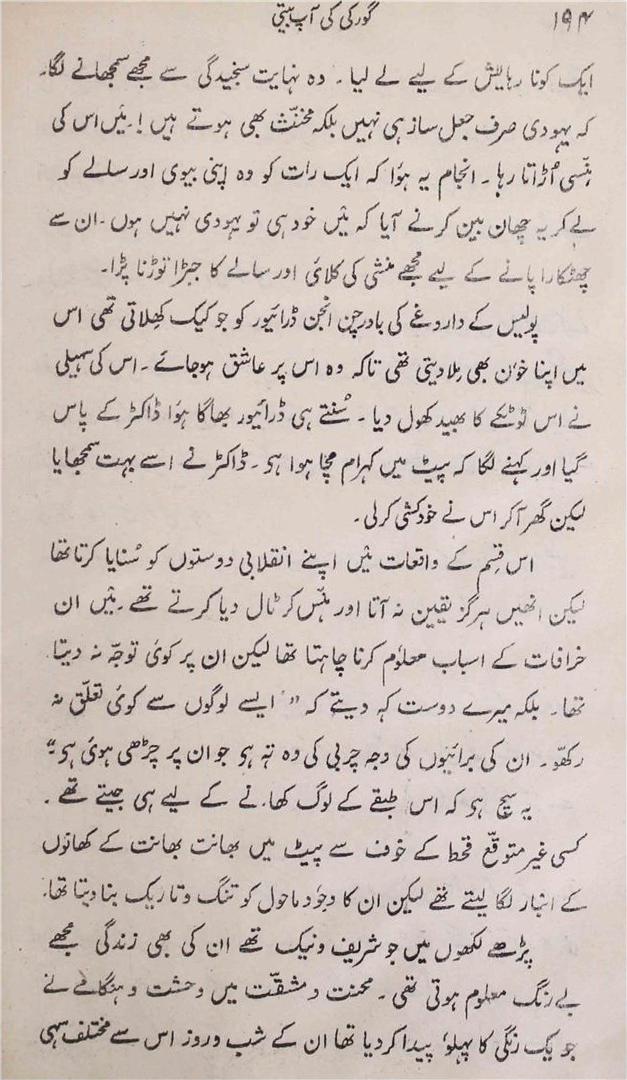 ۱۹۴
گورکی کی آپ بیتی
ایک کونا رہایش کے لیے لے لیا۔ وہ نہایت سنجیدگی سے مجھے سمجھانے لگا۔
کہ یہودی صرف جعل ساز ہی نہیں بلکہ مخنّث بھی ہوتے ہیں! مَیں اس کی
ہنسی اُڑاتا رہا۔ انجام یہ ہؤا کہ ایک رات کو وہ اپنی بیوی اور سالے کو
لے کر یہ چھان بین کرنے آیا کہ مَیں خود ہی تو یہودی نہیں ہوں۔ ان سے
چھٹکارا پانے کے لیے مجھے منشی کی کلائی اور سالے کا جبڑا توڑنا پڑا۔
پولیس کے داروغے کی باورچن انجن ڈرائیور کو جو کیک کھلاتی تھی اس
میں اپنا خوٗن بھی مِلا دیتی تھی تاکہ وہ اس پر عاشق ہوجائے۔ اس کی سہیلی
نے اس ٹوٹکے کا بھید کھول دیا۔ سُنتے ہی ڈرائیور بھاگا ہؤا ڈاکٹر کے پاس
گیا اور کہنے لگا کہ پیٹ میں کہرام مچا ہوا ہی۔ ڈاکٹر نے اسے بہت سمجھایا
لیکن گھر آکر اس نے خودکشی کرلی۔
اس قسِم کے واقعات مَیں اپنے انقلابی دوستوں کو سُنایا کرتا تھا
لیکن انھیں ہرگز یقین نہ آتا اور ہنس کر ٹال دیا کرتے تھے۔ مَیں ان
خرافات کے اسباب معلوٗم کرنا چاہتا تھا لیکن ان پر کوئی توجّہ نہ دیتا
تھا۔ بلکہ میرے دوست کہ دیتے کہ ”ایسے لوگوں سے کوئی تعلّق نہ
رکھّو۔ ان کی برائیوں کی وجہ چربی کی وہ تہ ہی جو ان پر چڑھی ہوئی ہی۔“
یہ سچ ہی کہ اس طبقے کے لوگ کھانے کے لیے ہی جیتے تھے۔
کسی غیر متوقّع قحط کے خوف سے پیٹ میں بھانت بھانت کے کھانوں
کے انبار لگا لیتے تھے لیکن ان کا وجوٗد ماحول کو تنگ و تاریک بنا دیتا تھا۔
پڑھے لکھوں میں جو شریف و نیک تھے ان کی بھی زندگی مجھے
بے رنگ معلوم ہوتی تھی۔ محنت و مشقّت میں وحشت و ہنگامے نے
جو یک رنگی کا پہلوٗ پیدا کردیا تھا ان کے شب و روز اس سے مختلف سہی